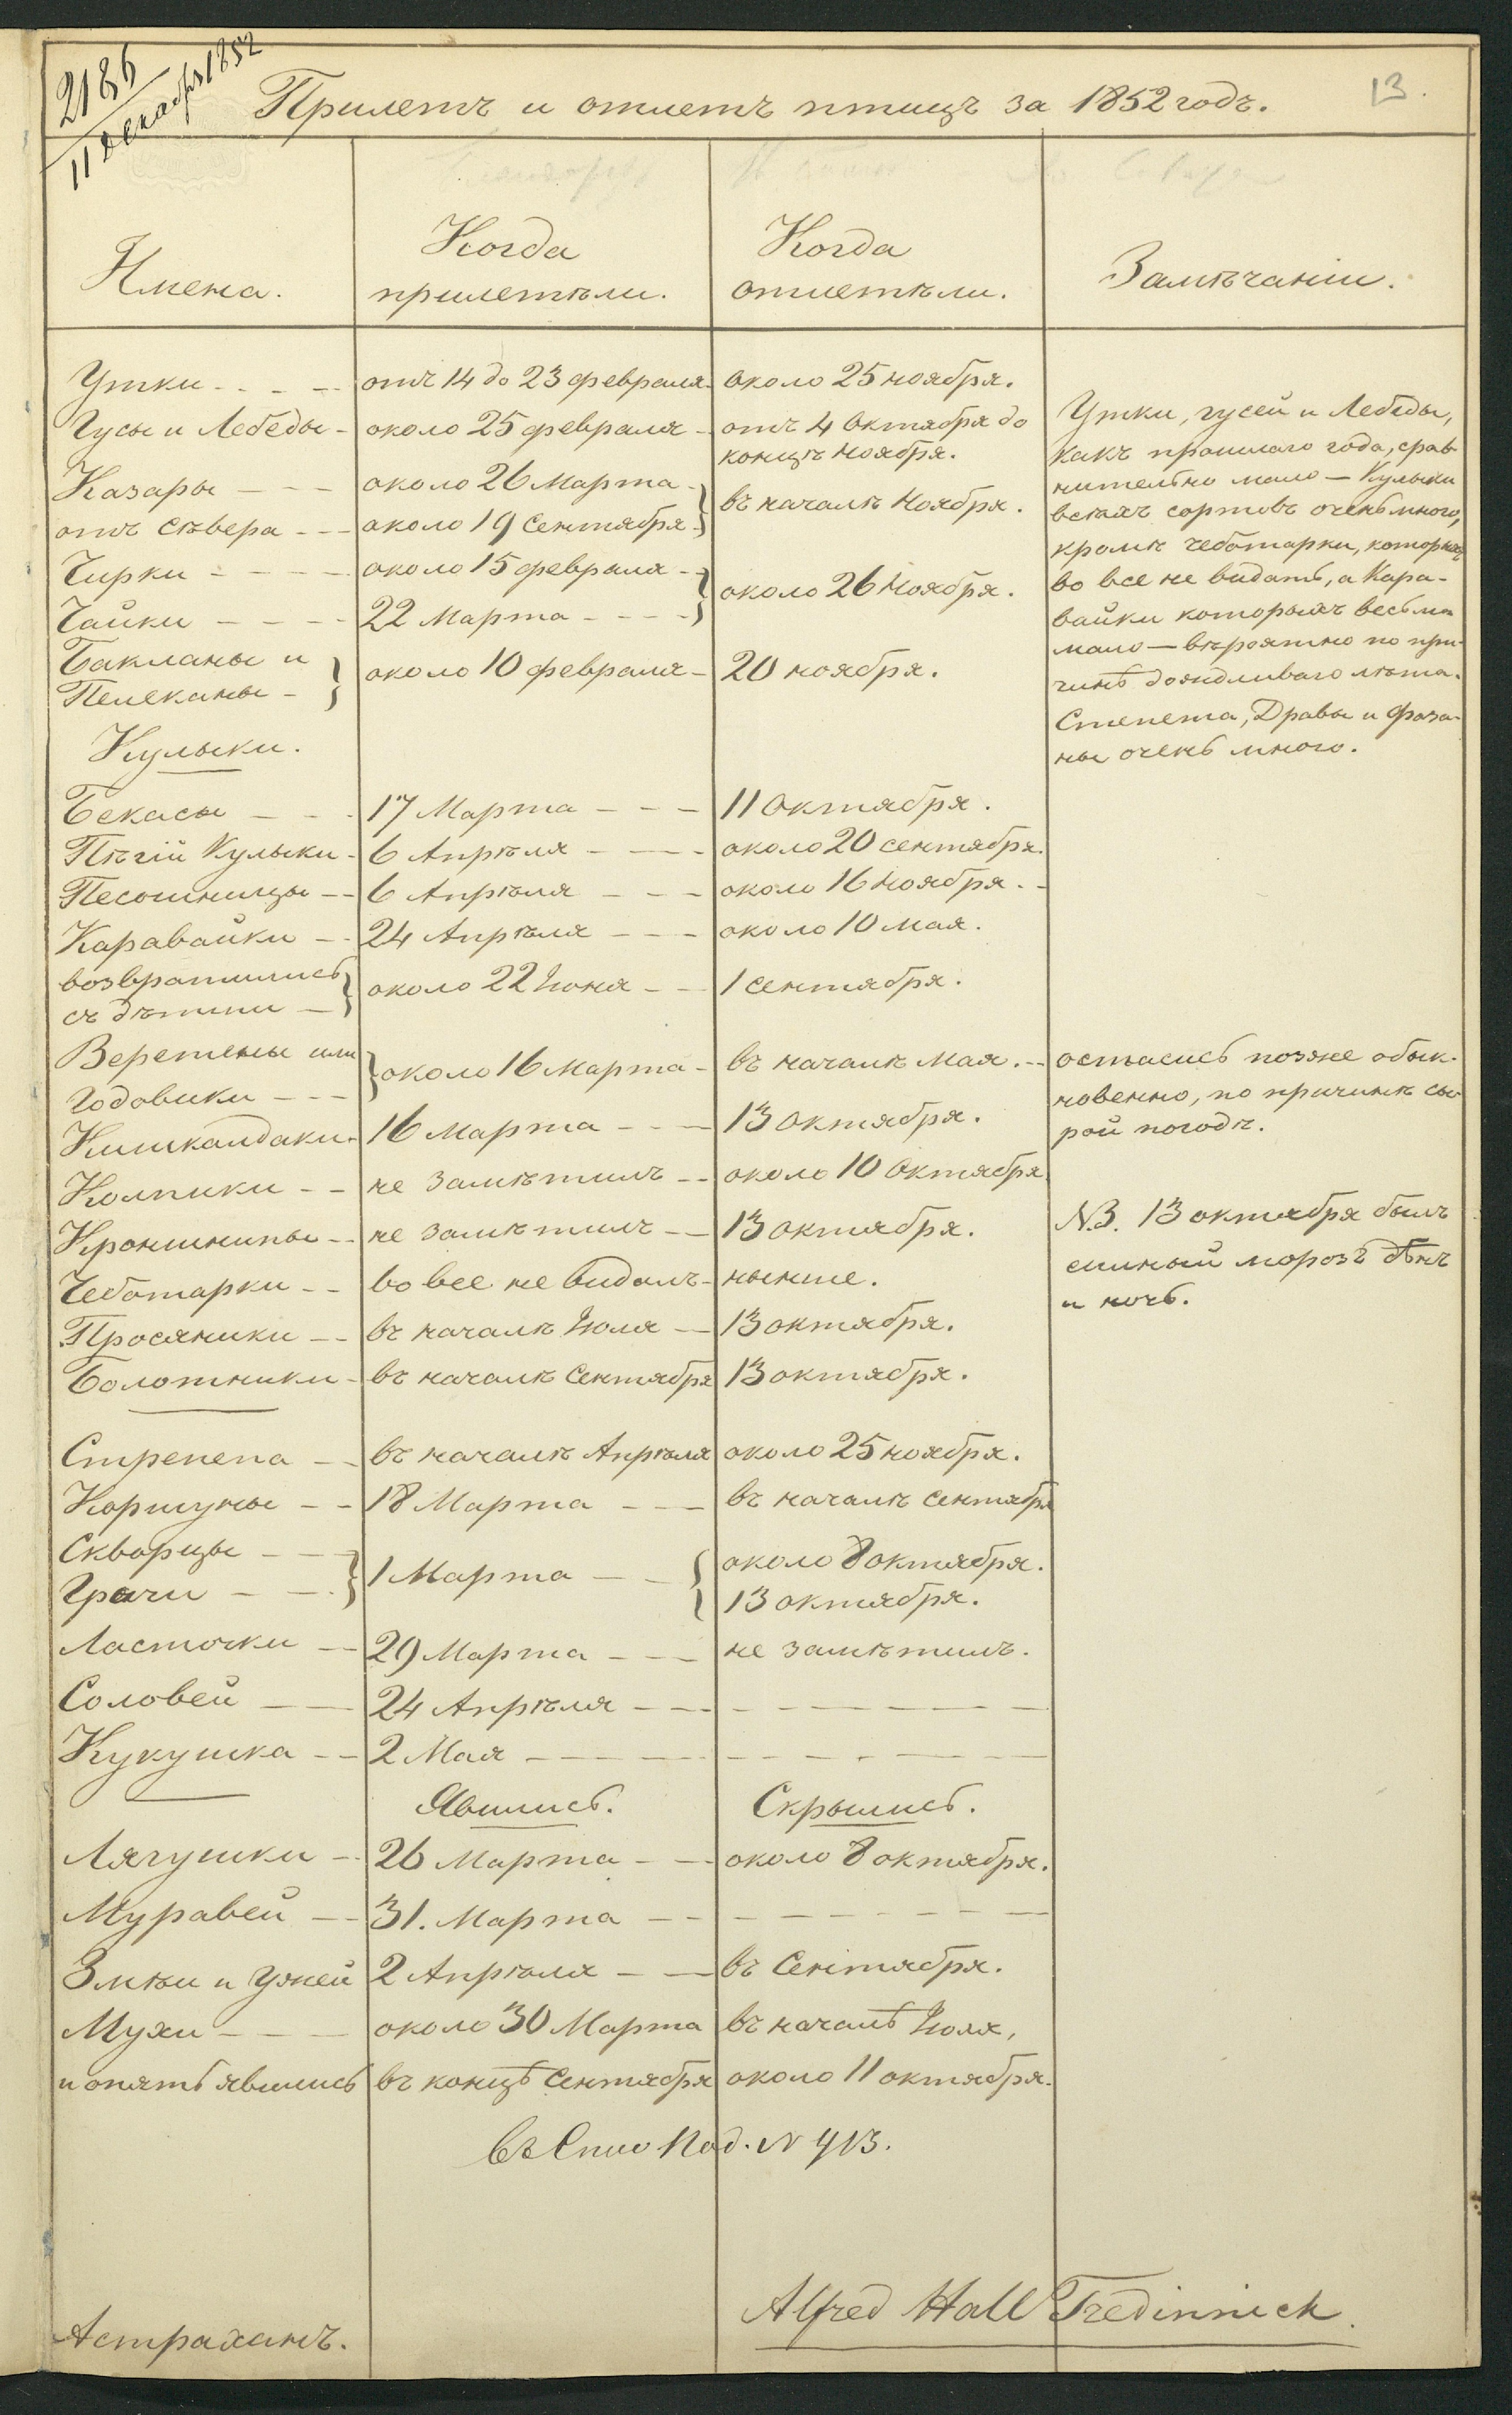 2186
11 декабр 1852
13.
Прилетъ и отлетъ птицъ за 1852 годъ.
Имена.
Когда прилетѣли.
Когда отлетѣли.
Замѣчаніи.
Утки - - - - отъ 14 до 23 февраля - около 25 ноября.
Гусы и Лебеды - около 25 февраля - отъ 4 Октября до
концѣ ноября.
Казары - - - около 26 Марта - } въ началѣ Ноября.
отъ сѣвера - - - около 19 Сентября - }
Чирки - - - - около 15 февраля - - } около 26 Ноября.
Чайки - - - - 22 Марта - - - - }
Бакланы и } около 10 февраля - 20 ноября.
Пелеканы - }
Утки, гусей и Лебеды,
какъ прошлаго года, срав-
нительно мало — Кулыки
всѣхъ сортовъ очень много,
кромѣ чеботарки, которыхъ
во все не видать, а Кара-
вайки которыхъ весьма
мало — вѣроятно по при-
чинѣ дождливаго лѣта.
Степета, Дравы и Фаза-
ны очень много.
Кулыки.
Бекасы - - - 17 Марта - - - 11 Октября.
Пѣгій Кулыки - 6 Апрѣля - - - около 20 сентября.
Песошницы - - 6 Апрѣля - - - около 16 Ноября - -
Каравайки - - 24 Апрѣля - - - около 10 Мая.
возвратились } около 22 Іюня - - 1 сентября.
съ дѣтми - }
Веретены или } около 16 Марта - въ началѣ Мая. - - остались позже обык-
Годовики - - -
новенно, по причинѣ сы-
рой погодѣ.
Кишкалдаки - 16 Марта - - - 13 Октября.
Колпики - - не замѣтилъ - - около 10 Октября
Кроншнипы - - не замѣтилъ - - 13 октября.
Чеботарки - - во все не видалъ - нынше.
Просяники - - въ началѣ Іюля - 13 октября.
Болотники - въ началѣ Сентября 13 октября.
N.B. 13 октября былъ
силный морозъ дѣнъ
и ночь.
Стрепета - - въ началѣ Апрѣля около 25 ноября.
Коршуны - - 18 Марта - - - въ началѣ Сентября
Скворцы - - - } 1 Марта - - { около 8 октября.
Грачи - - - } { 13 октября.
Ласточки - - 29 Марта - - - не замѣтилъ.
Соловей - - 24 Апрѣля - - - - - - - - - -
Кукушка - - 2 Мая - - - - - - - - - - -
Явились. Скрылись.
Лягушки - - 26 Марта - - - около 8 октября.
Муравей - - 31. Марта - - - - - - - - - -
Змѣи и Ужей 2 Апрѣля - - въ Сентября.
Мухи - - - около 30 Марта въ началѣ Іюля,
и опять явились въ концѣ Сентября около 11 октября.
N 413.
Alfred Hall Tredinnick.
Астрахань.